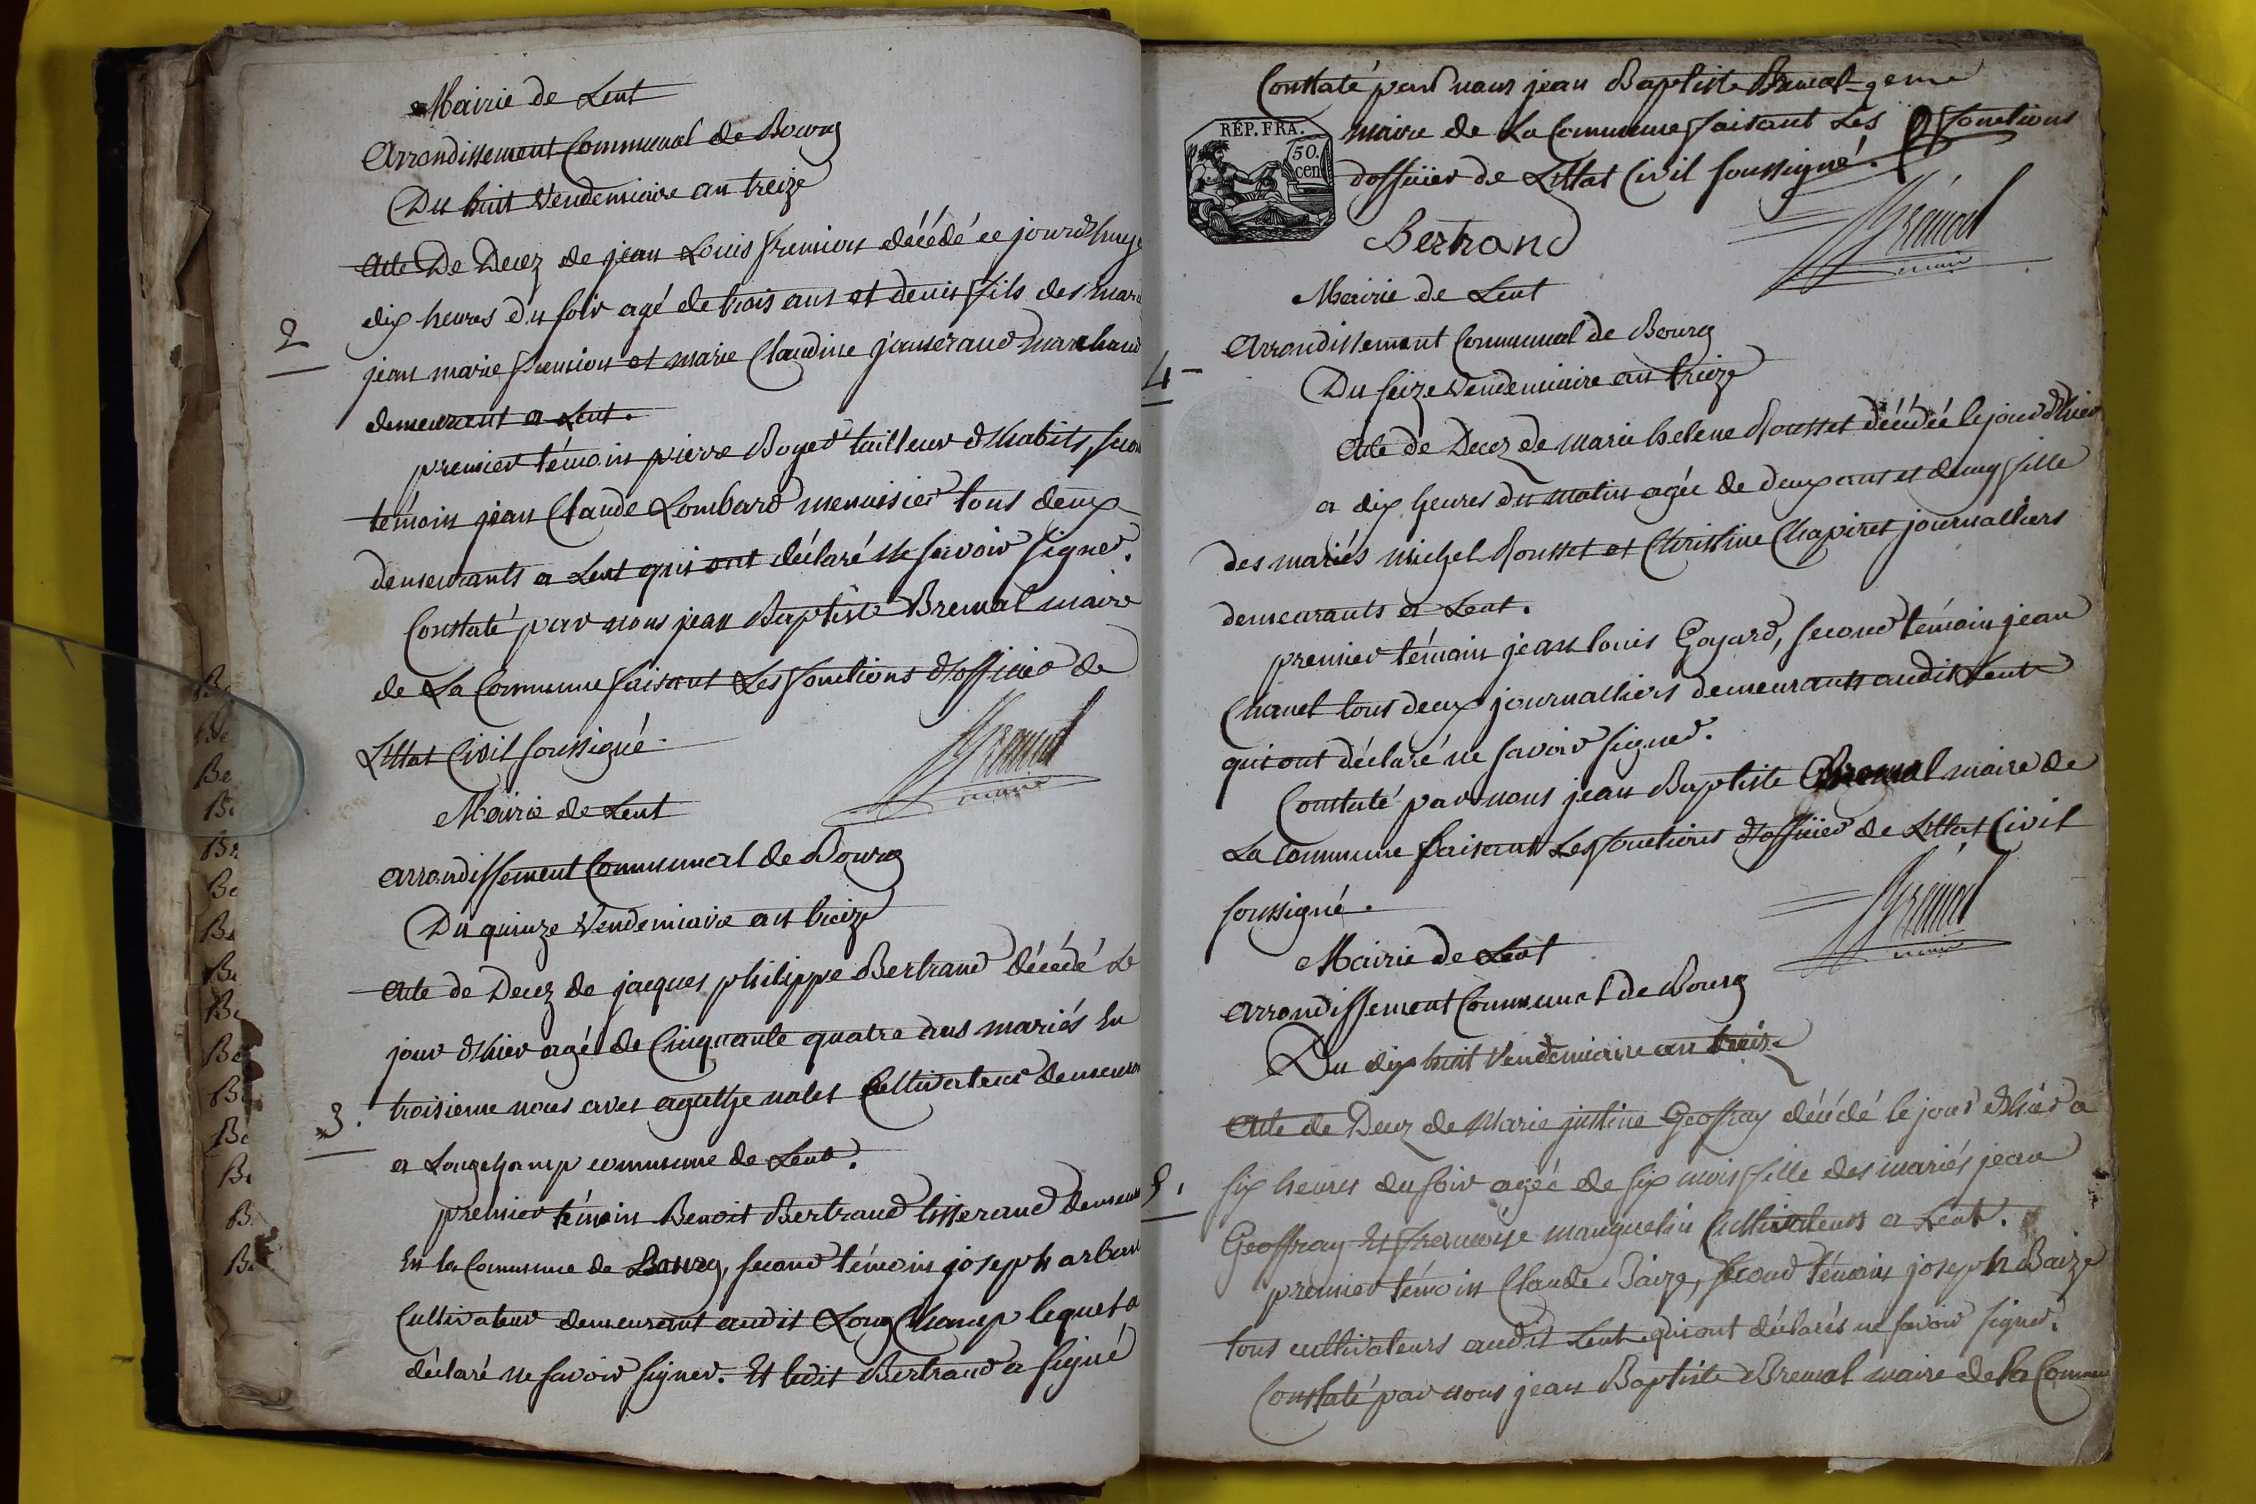 Mairie de Lent
Arrondissement Communal de Bourg
Du huit Vendemiaire an treize
2
Acte De Decez de jean Louis fremion décédé ce jourdhuy
dix heures du soir agé de trois ans et demis fils des mari
jean marie fremion et marie Claudine janseraud marchand
demeurent a Lent.
premier témoin pierre Boyer tailleur d'habits, secon
témoin jean Claude Lombard menuisier tous deux
demeurants a Lent qui ont déclaré ne savoir signer.
Constaté par nous jean Baptiste Bremal maire
de La Commune faisant Les fonctions d'officier de
L'Etat Civil soussigné.
maire
Mairie de Lent
arrondissement Communal de Bourg
Du quinze Vendemiaire an treize
3.
Acte de Decez de jacques philippe Bertrand décédé Le
jour d'hier agé de Cinquante quatre ans mariés En
troisieme avec agathe Cultivateur demeuran
a Longchamp commune de Lent.
premier témoin Benoit Bertrand tisserand demeura
En la Commune de Bourg, second témoin joseph arban
Cultivateur demeurant audit Long Champ lequel a
déclaré ne savoir signer. Et ledit Bertrand a signé
Constaté par nous jean Baptiste Bremal
maire de La Commune faisant Les fonctions
d'officier de L'Etat Civil soussigné.
REP. FRA.
50.
cen
Bertrand
Bremal
maire
Mairie de Lent
Arrondissement Communal de Bourg
4
Du seize Vendemiaire an treize
Acte de Decez de marie helene Rousset décédée le jour d'hier
a dix heures du matin agée de deux ans et demy fille
des mariés michel Rousset et Christine Chapiret journalliers
demeurants a Lent.
premier témoin jean louis Goyard, second témoin jean
Chanel tous deux journalliers demeurants audit Lent
qui ont déclaré ne savoir signer.
Constaté par nous jean Baptiste Bremal maire de
La Commune faisant Les fonctions d'officier de L'Etat Civil
soussigné.
Bremal
maire
Mairie de Lent
arrondissement Communal de Bourg
Du dix huit Vendemiaire an treize
5.
Acte de Decez de Marie justine Geoffray décédé le jour d'hier a
six heures du soir agée de six mois fille des mariés jean
Geoffray Et francoise manguelin Cultivateurs a Lent.
premier témoin Claude Baize, second témoin joseph Baize
tous cultivateurs audit Lent qui ont déclarés ne savoir signer.
Constaté par nous jean Baptiste Bremal maire de la Commu